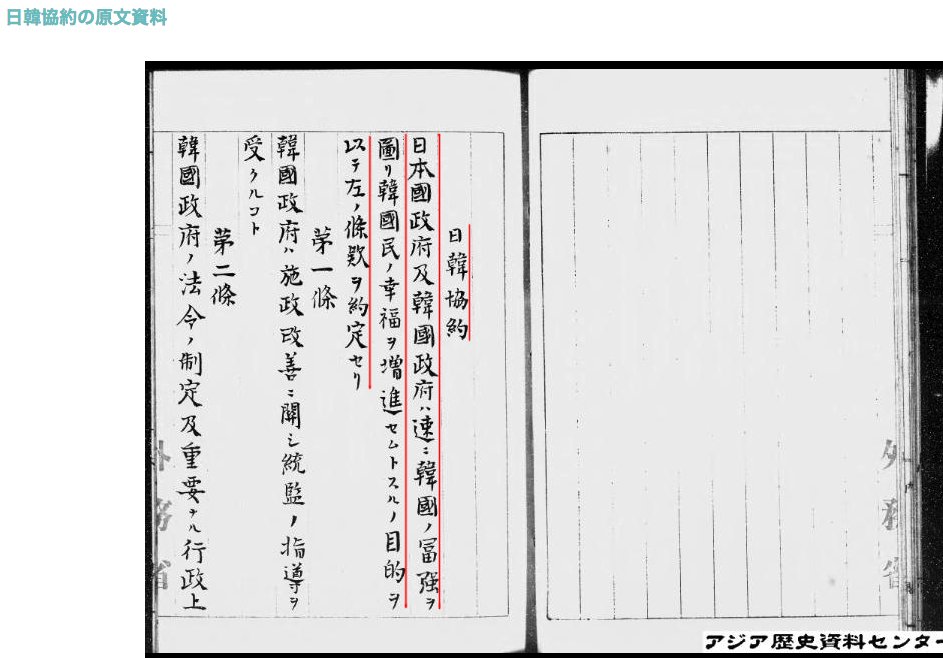 日韓協約の原文資料
日韓協約
日本國政府及韓國政府ハ速ニ韓國ノ冨强ヲ
圖リ韓國民ノ幸福ヲ增進セムトスルノ目的ヲ
以テ左ノ條欵ヲ約定セリ
第一條
韓國政府ハ施政改善ニ關シ統監ノ指導ヲ
受クルコト
第二條
韓國政府ノ法令ノ制定及重要ナル行政上
外務省
外務省
アジア歴史資料センター